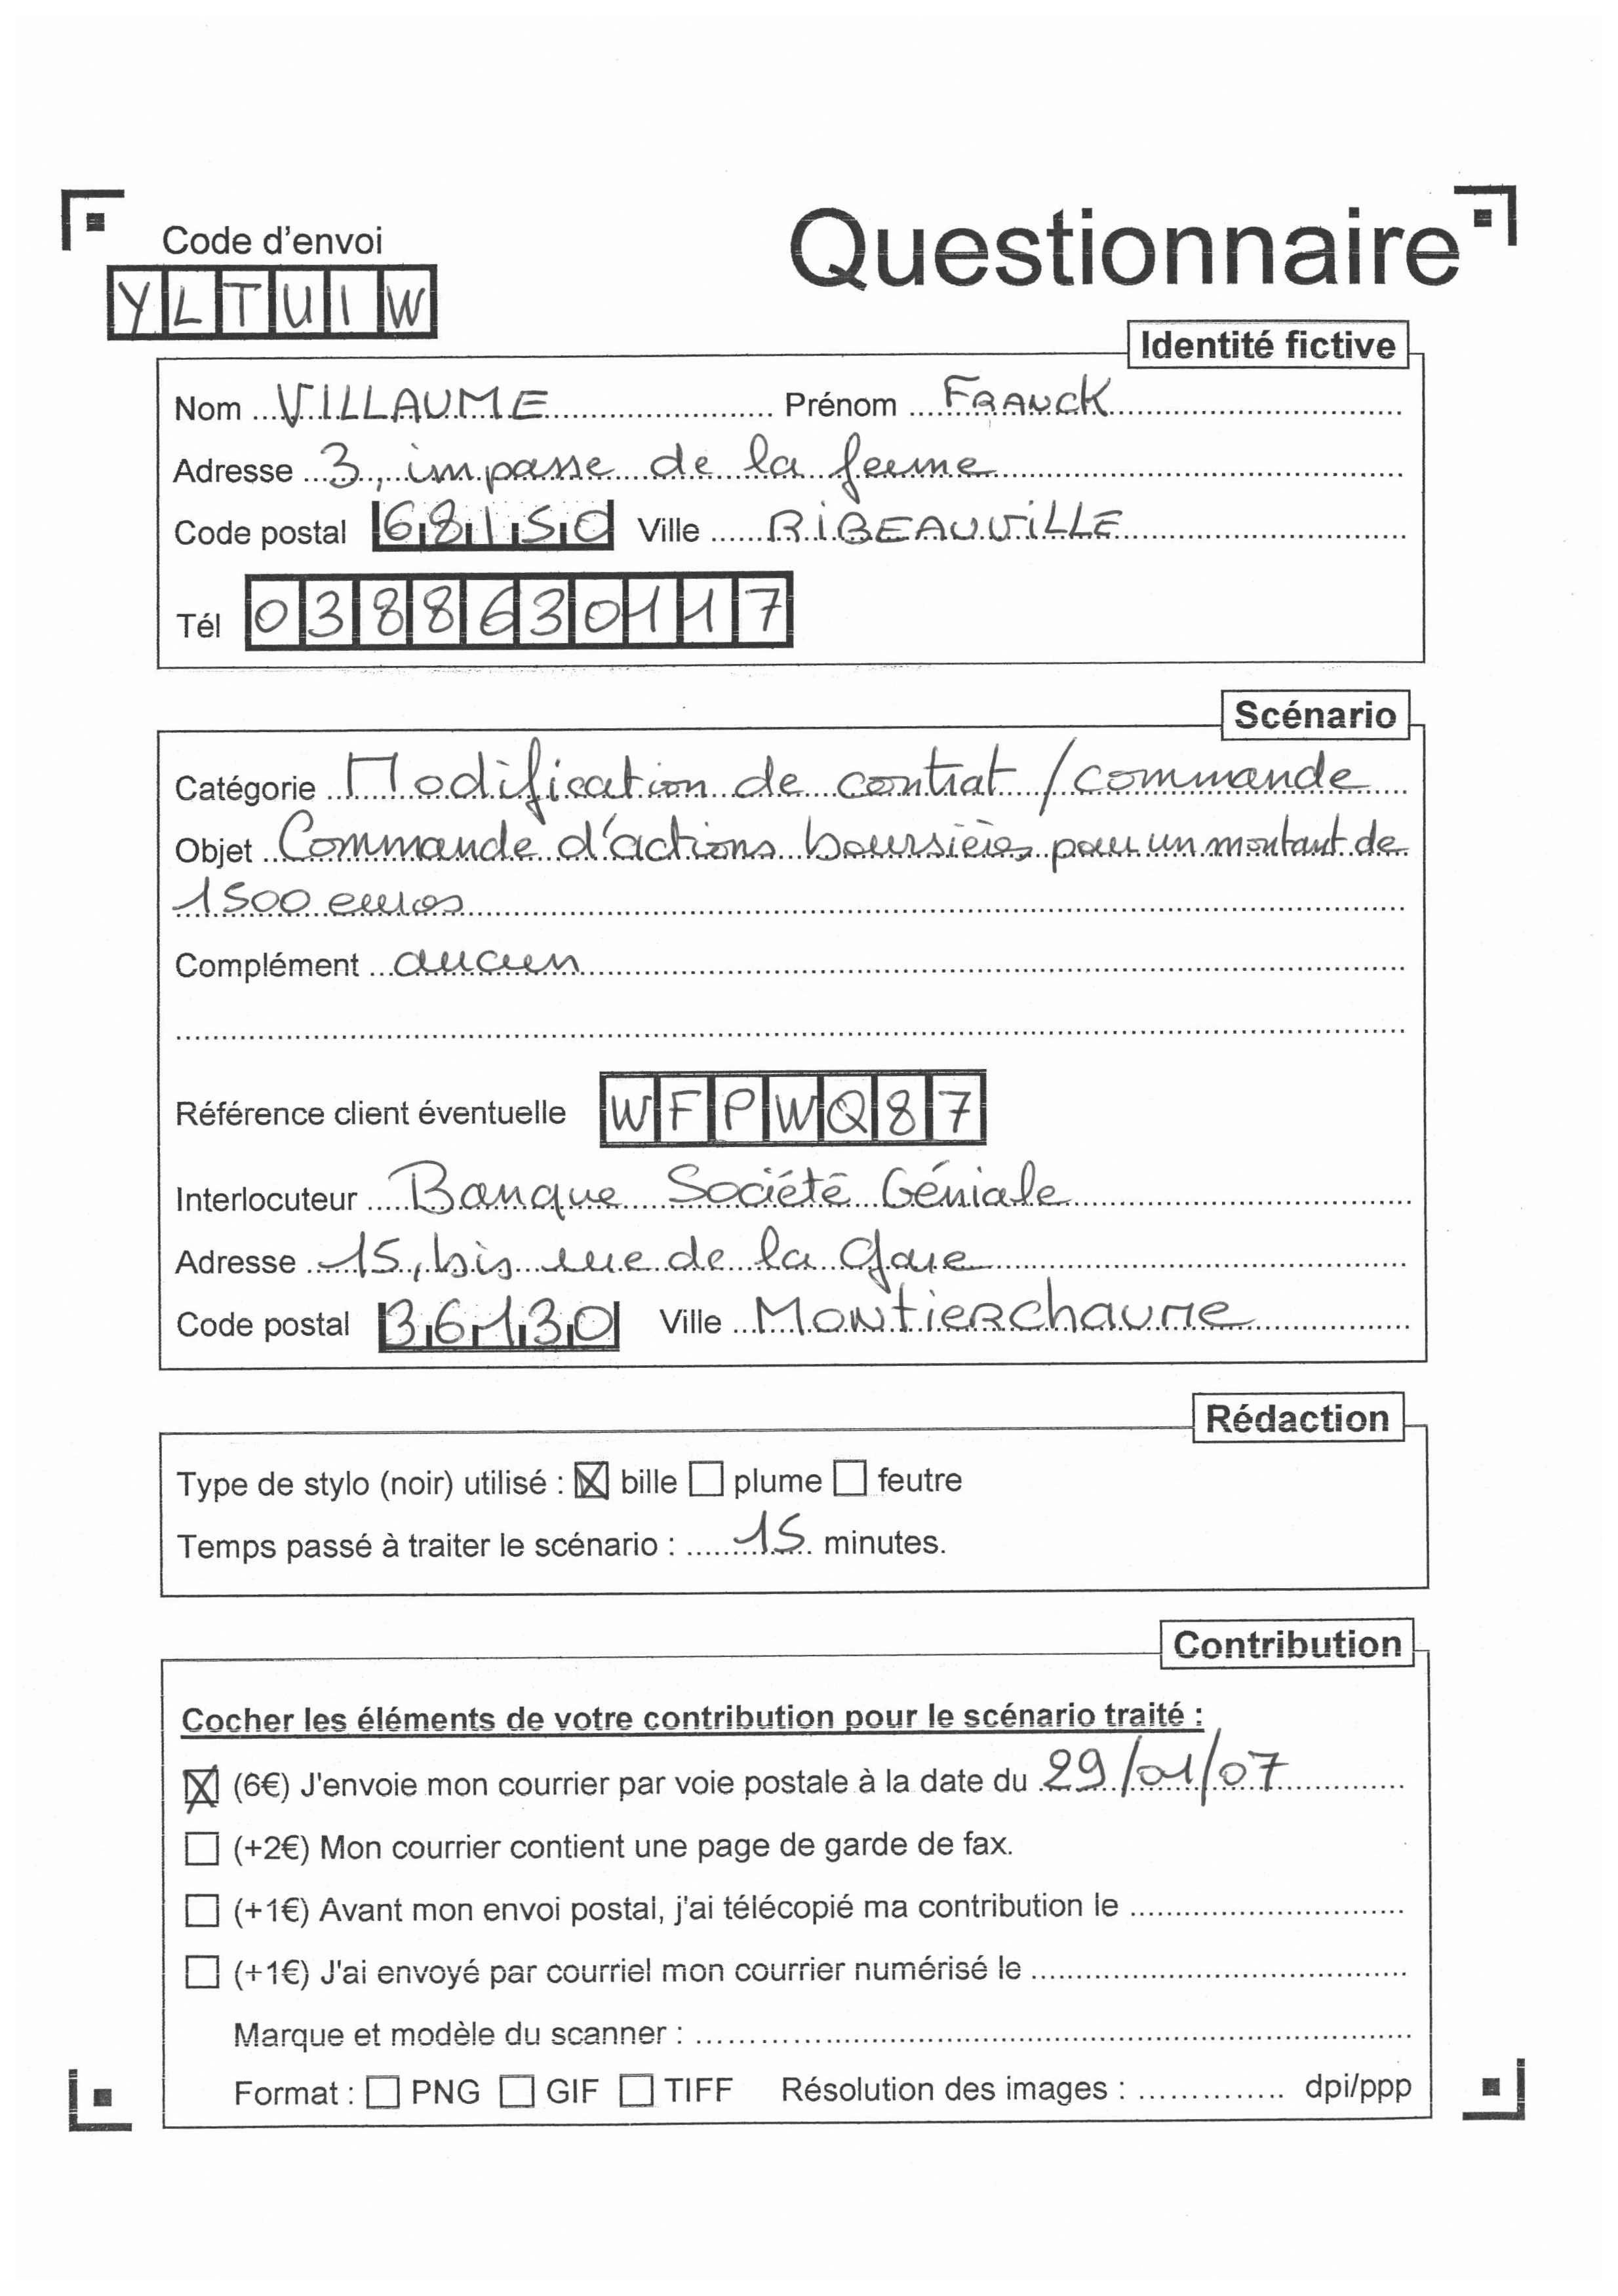 Code d'envoi
Questionnaire
YLTUIW
Identité fictive
Nom VILLAUME Prénom FRANCK
Adresse 3, impasse de la ferme
Code postal 68150 Ville RIBEAUVILLE
Tél 0388630117
Scénario
Catégorie Modification de contrat / commande
Objet Commande d'actions boursières pour un montant de
1500 euros
Complément aucun
Référence client éventuelle WFPWQ87
Interlocuteur Banque Société Géniale
Adresse 15, bis rue de la Gare
Code postal 36130 Ville Montierchaume
Rédaction
Type de stylo (noir) utilisé : ☒ bille ☐ plume ☐ feutre
Temps passé à traiter le scénario : 15 minutes.
Contribution
Cocher les éléments de votre contribution pour le scénario traité :
☒ (6€) J'envoie mon courrier par voie postale à la date du 29/01/07
☐ (+2€) Mon courrier contient une page de garde de fax.
☐ (+1€) Avant mon envoi postal, j'ai télécopié ma contribution le
☐ (+1€) J'ai envoyé par courriel mon courrier numérisé le
Marque et modèle du scanner :
Format : ☐ PNG ☐ GIF ☐ TIFF Résolution des images : dpi/ppp